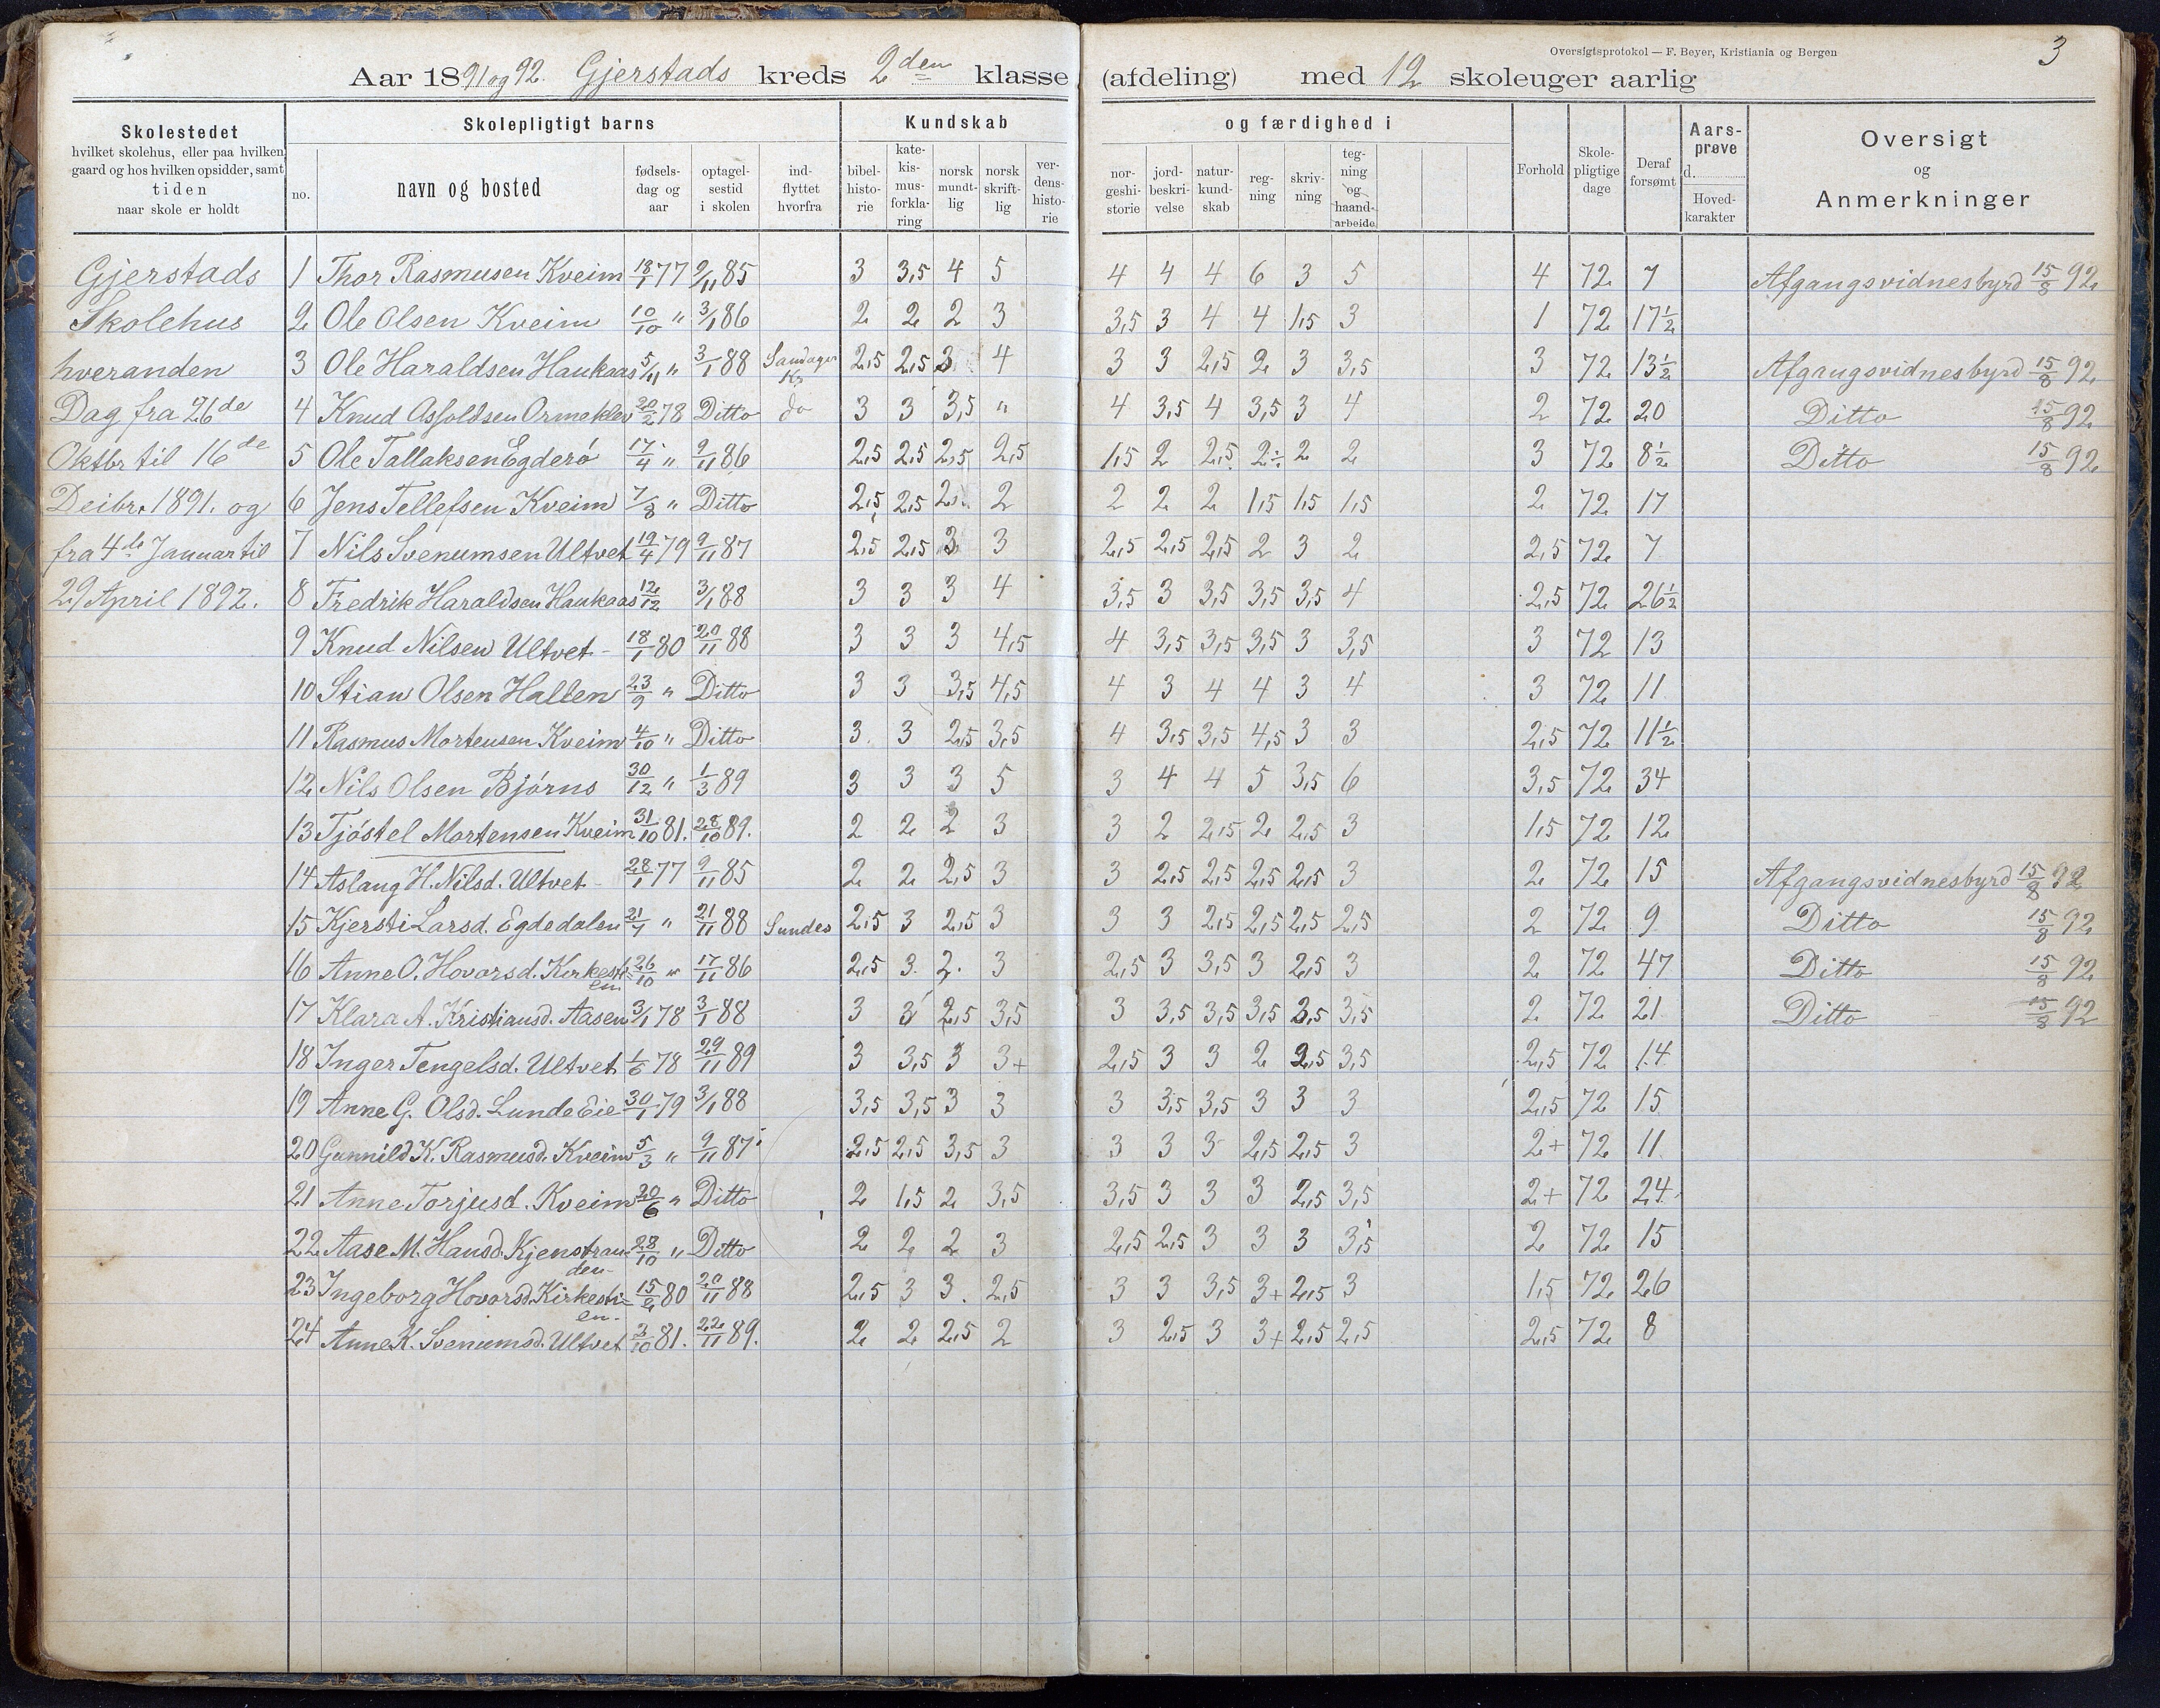 Oversigtsprotokol — F. Beyer, Kristiania og Bergen
3
Aar 1891 og 92. Gjerstads kreds 2den klasse (afdeling) med 12 skoleuger aarlig
Skolestedet
hvilket skolehus, eller paa hvilken
gaard og hos hvilken opsidder, samt
tiden
naar skole er holdt
Skolepligtigt barns
no.
navn og bosted
fødsels-
dag og
aar
optagel-
sestid
i skolen
ind-
flyttet
hvorfra
Kundskab og færdighed i
bibel-
histo-
rie
kate-
kis-
mus-
forkla-
ring
norsk
mundt-
lig
norsk
skrift-
lig
ver-
dens-
histo-
rie
nor-
geshi-
storie
jord-
beskri-
velse
natur-
kund-
skab
reg-
ning
skriv-
ning
teg-
ning
og
haand-
arbeide
Forhold
Skole-
pligtige
dage
Deraf
forsømt
Aars-
prøve
d.
Hoved-
karakter
Oversigt
og
Anmerkninger
Gjerstads
Skolehus
hveranden
Dag fra 26de
Oktbr til 16de
Deibr. 1891. og
fra 4de Januar til
29 April 1892.
1 Thor Rasmusen Kveim 18/1 77 9/11 85 3 3,5 4 5 4 4 4 6 3 5 4 72 7 Afgangsvidnesbyrd 15/8 92
2 Ole Olsen Kveim 10/10 " 3/1 86 2 2 2 3 3,5 3 4 4 1,5 3 1 72 17½
3 Ole Haraldsen Haukaas 5/11 " 3/1 88 Sandager Kr 2,5 2,5 3 4 3 3 2,5 2 3 3,5 3 72 13½ Afgangsvidnesbyrd 15/8 92
4 Knud Asfoldsen Ormeklev 20/2 78 Ditto do 3 3 3,5 " 4 3,5 4 3,5 3 4 2 72 20 Ditto 15/8 92
5 Ole Tallaksen Egderö 17/4 " 9/11 86 2,5 2,5 2,5 2,5 1,5 2 2,5 2÷ 2 2 3 72 8½ Ditto 15/8 92
6 Jens Tellefsen Kveim 7/8 " Ditto 2,5 2,5 2 2 2 2 2 1,5 1,5 1,5 2 72 17
7 Nils Svenumsen Ultvet 19/4 79 9/11 87 2,5 2,5 3 3 2,5 2,5 2,5 2 3 2 2,5 72 7
8 Fredrik Haraldsen Haukaas 12/12 3/1 88 3 3 3 4 3,5 3 3,5 3,5 3,5 4 2,5 72 26½
9 Knud Nilsen Ultvet 18/1 80 20/11 88 3 3 3 4,5 4 3,5 3,5 3,5 3 3,5 3 72 13
10 Stian Olsen Halten 23/9 " Ditto 3 3 3,5 4,5 4 3 4 4 3 4 3 72 11
11 Rasmus Mortensen Kveim 4/10 " Ditto 3 3 2,5 3,5 4 3,5 3,5 4,5 3 3 2,5 72 11½
12 Nils Olsen Bjørns 30/12 " 1/3 89 3 3 3 5 3 4 4 5 3,5 6 3,5 72 34
13 Tjöstel Mortensen Kveim 31/10 81. 28/10 89. 2 2 2 3 3 2 2,5 2 2,5 3 1,5 72 12
14 Aslaug H. Nilsd. Ultvet 28/1 77 9/11 85 2 2 2,5 3 3 2,5 2,5 2,5 2,5 3 2 72 15 Afgangsvidnesbyrd 15/8 92
15 Kjersti Larsd. Egdedalen 21/7 " 21/11 88 Sundes 2,5 3 2,5 3 3 3 2,5 2,5 2,5 2,5 2 72 9 Ditto 15/8 92
16 Anne O. Hovorsd. Kirkesti-en 26/10 " 17/11 86 2,5 3 2 3 2,5 3 3,5 3 2,5 3 2 72 47 Ditto 15/8 92
17 Klara A. Kristiansd. Aasen 3/1 78 3/1 88 3 3 2,5 3,5 3 3,5 3,5 3,5 2,5 3,5 2 72 21 Ditto 15/8 92
18 Inger Tengelsd. Ultvet 1/6 78 29/11 89 3 3,5 3 3+ 2,5 3 3 2 2,5 3,5 2,5 72 14
19 Anne G. Olsd. Lunde Eie 30/1 79 3/1 88 3,5 3,5 3 3 3 3,5 3,5 3 3 3 2,5 72 15
20 Gunnild K. Rasmusd. Kveim 5/3 " 9/11 87 2,5 2,5 3,5 3 3 3 3 2,5 2,5 3 2+ 72 11
21 Anne Torjusd. Kveim 20/6 " Ditto 2 1,5 2 3,5 3,5 3 3 3 2,5 3,5 2+ 72 24
22 Aase M. Hansd. Kjenstran-den 28/10 " Ditto 2 2 2 3 2,5 2,5 3 3 3 3,5 2 72 15
23 Ingeborg Hovorsd. Kirkesti-en 15/2 80 20/11 88 2,5 3 3 2,5 3 3 3,5 3+ 2,5 3 1,5 72 26
24 Anne K. Svenumsd. Ultvet 3/10 81. 22/11 89. 2 2 2,5 2 3 2,5 3 3+ 2,5 2,5 2,5 72 8